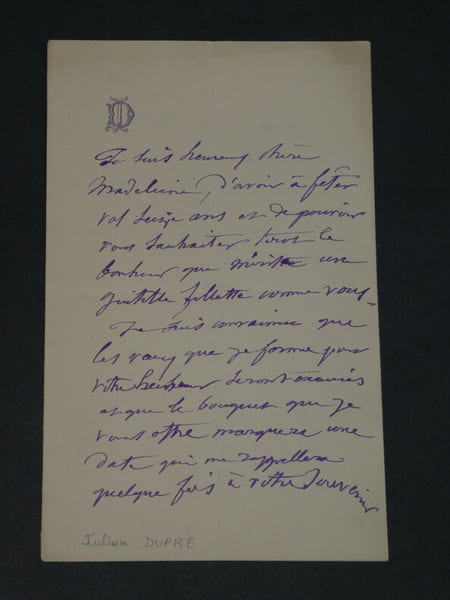 JD
Je suis heureux chère
Madeleine, d'avoir à fêter
vos seize ans et de pouvoir
vous souhaiter tout le
bonheur que mérite une
gentille fillette comme vous.
Je suis convaincu que
les vœux que je forme pour
votre bonheur seront exaucés
et que le bouquet que je
vous offre marquera une
date qui me rappellera
quelque fois à votre souvenir
Julien DUPRE